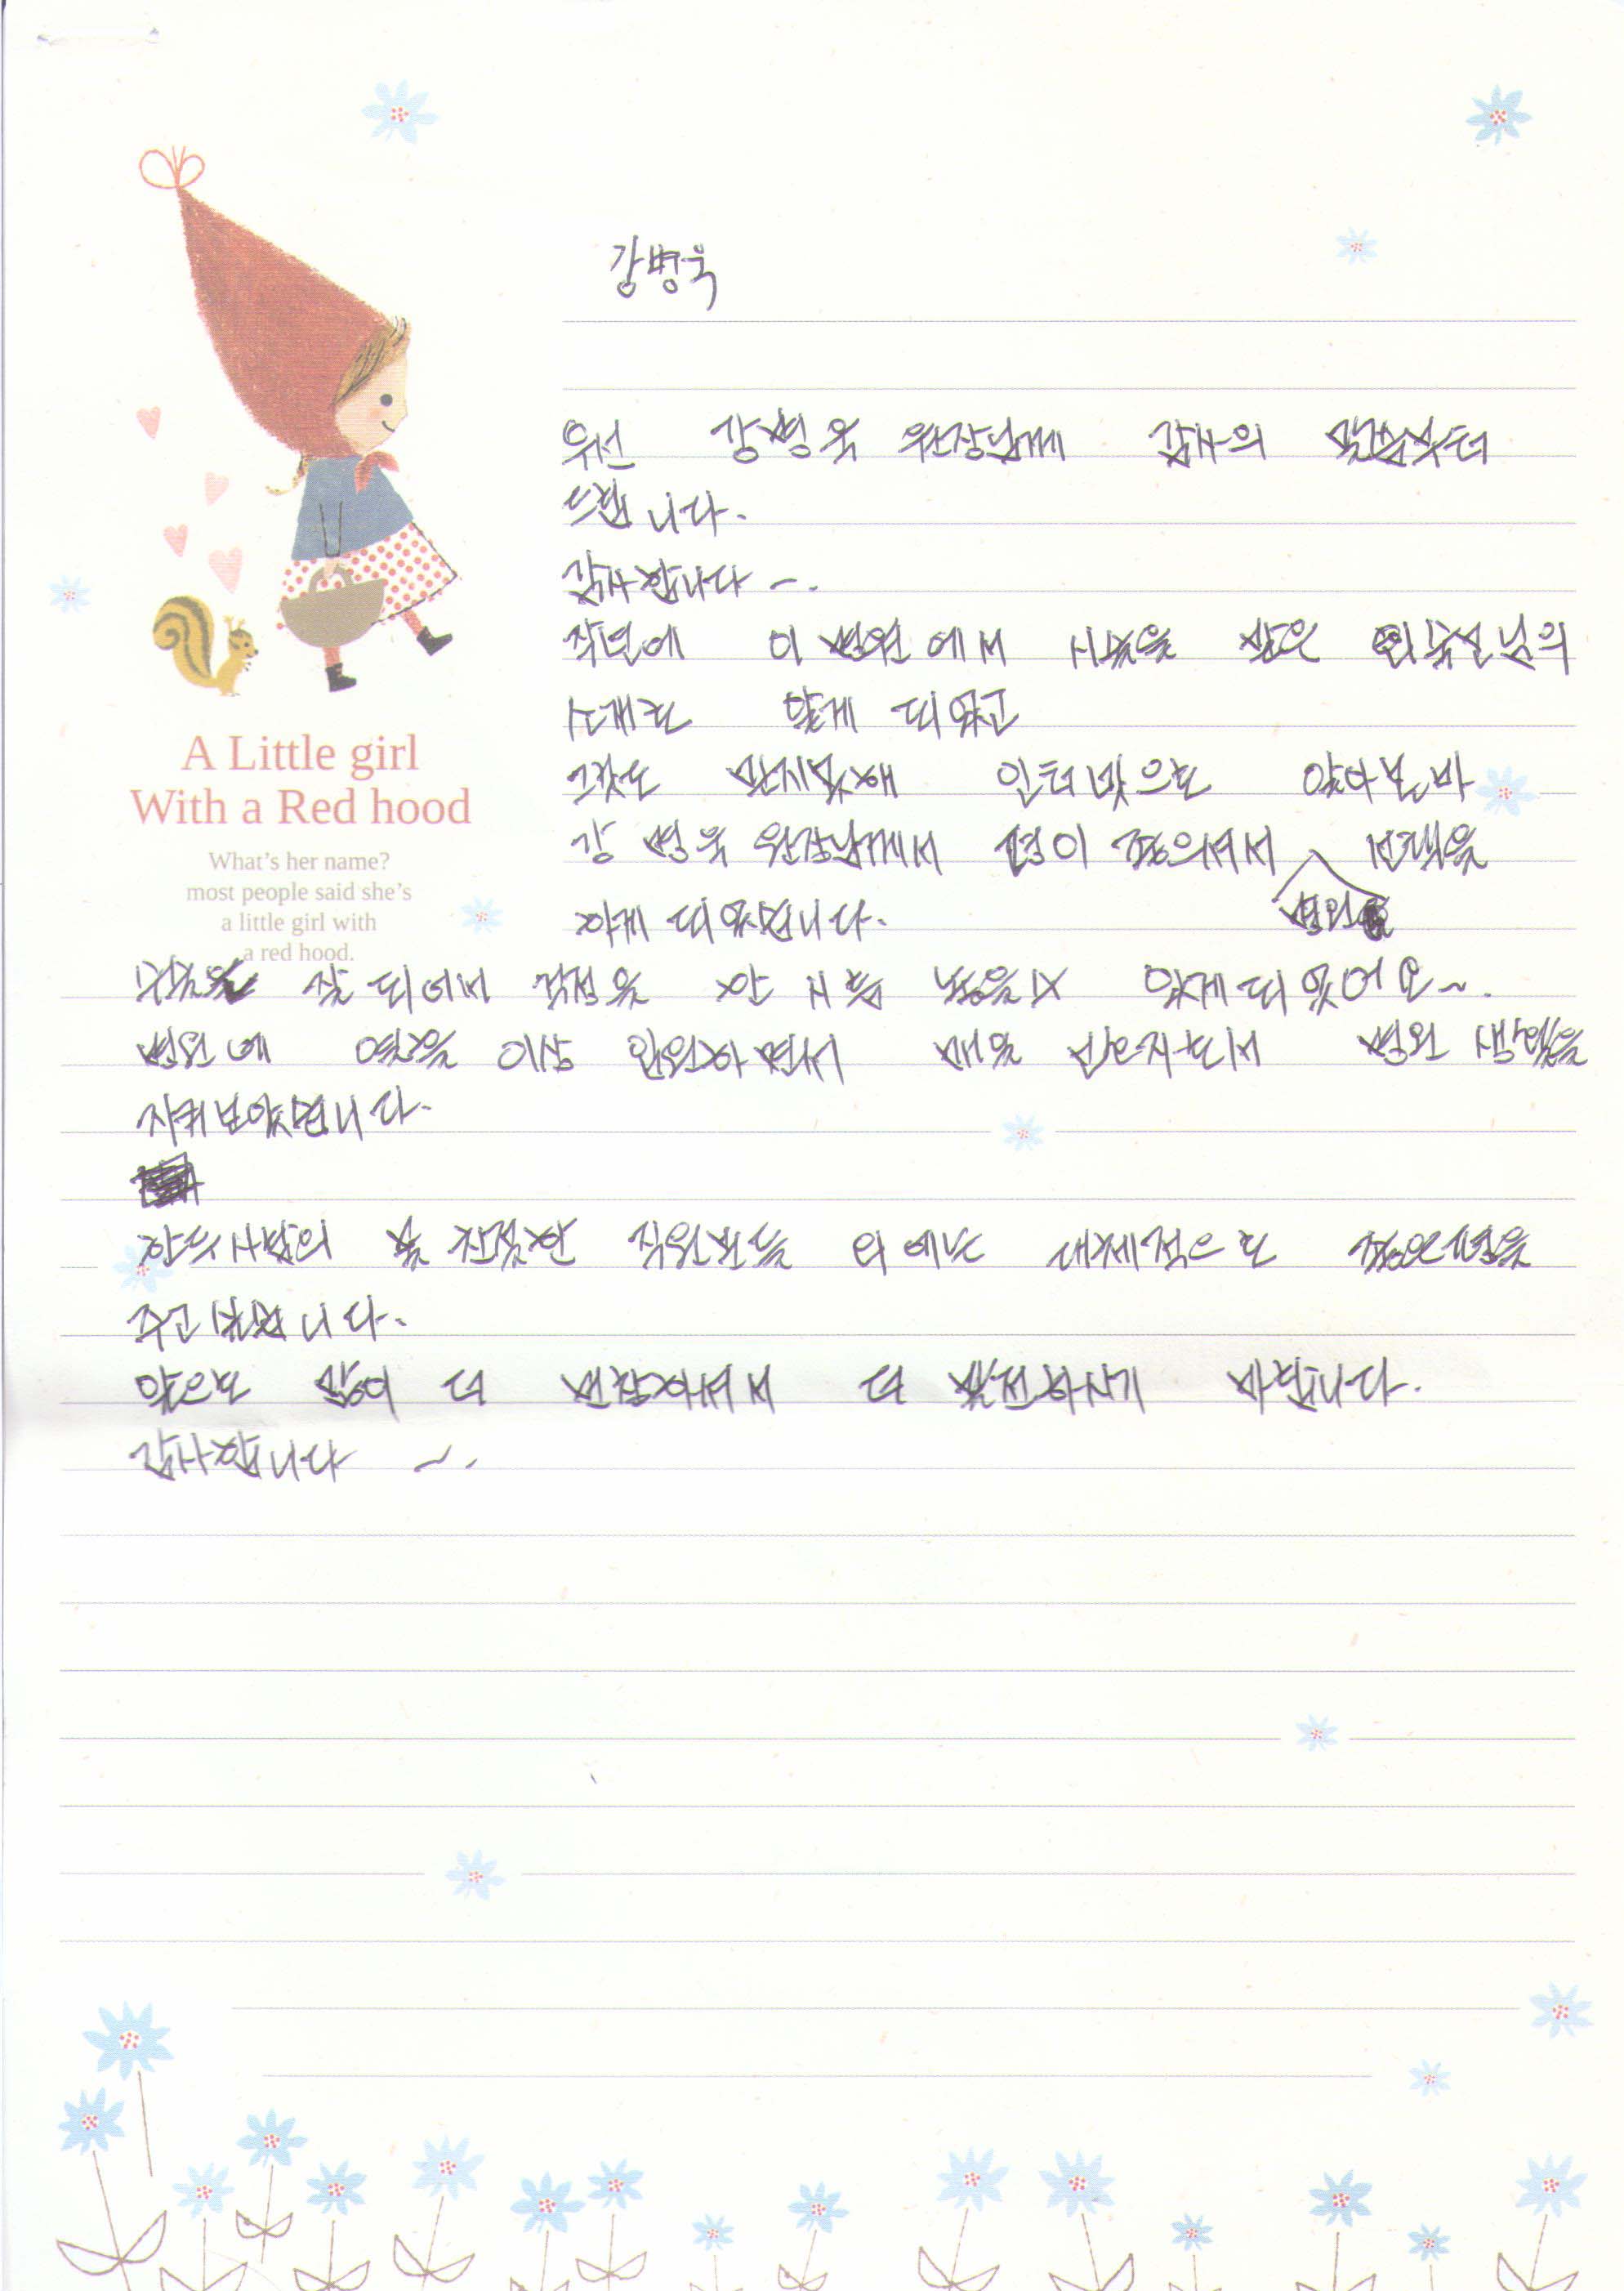 강병욱
우선 강병욱 원장님께 감사의 말씀부터
드립니다.
감사합니다~.
작년에 이 병원에서 시술을 받은 외숙모님의
소개로 알게 되었고
그것도 인터넷으로 알아본바
강병욱 원장님께서 평이 좋으셔서 병원 선택을
하게 되었습니다.
수술을 잘 되어서 걱정을 한 시름 놓을 수 있게 되었어요~.
병원에 열흘 이상 입원하면서 병원 생활을
지켜보았습니다.
한두사람의 불친절한 직원분들 외에는 대체적으로 좋은 평을
주고 싶습니다.
앞으로 더 번창하셔서 더 발전하시기 바랍니다.
감사합니다 ~.
A Little girl
With a Red hood
What's her name?
most people said she's
a little girl with
a red hood.